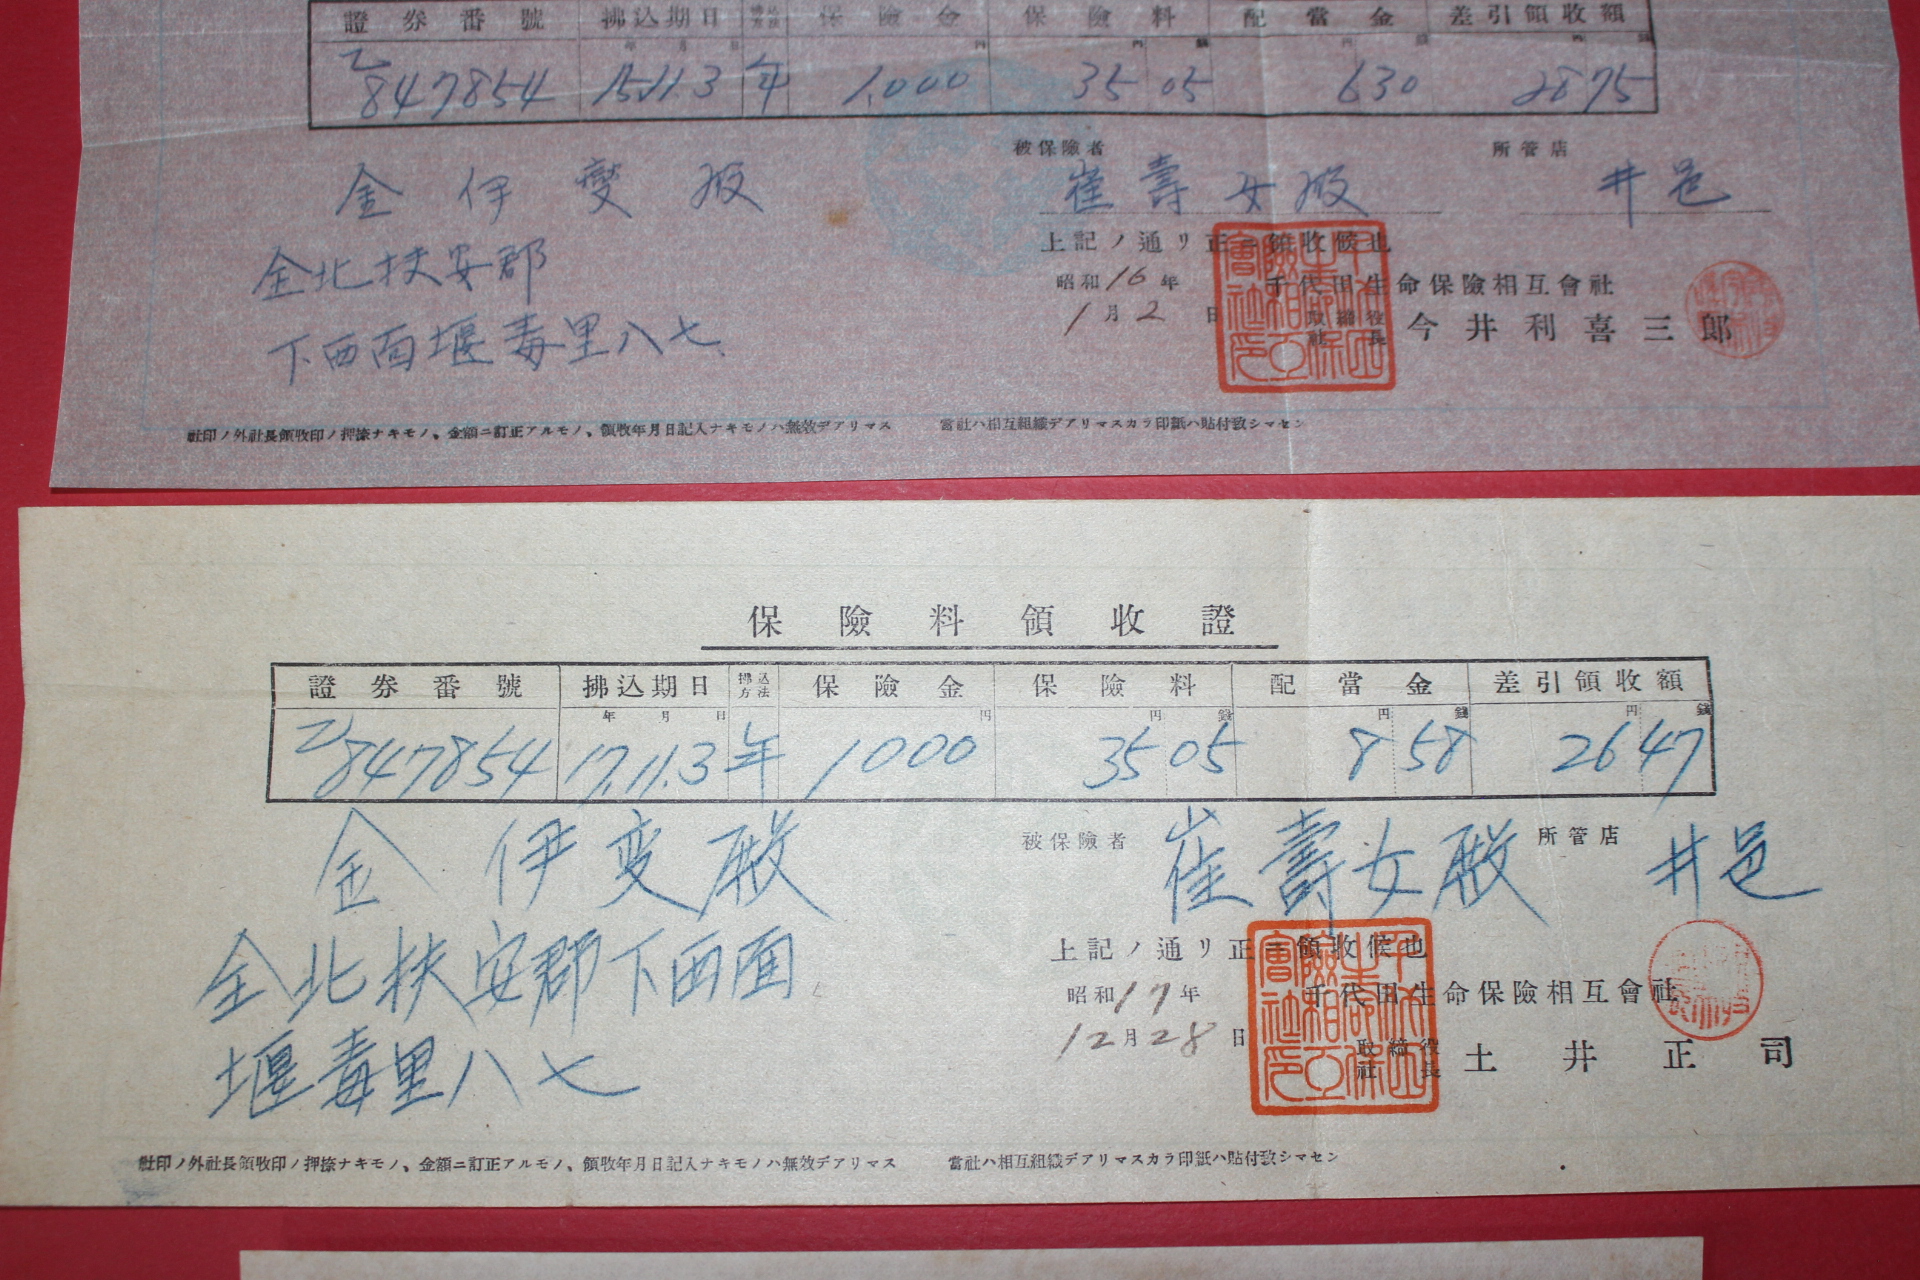 證券番號 拂込期日 拂込方法 保險金 保險料 配當金 差引領收額
年 月 日 円 円 錢 円 錢 円 錢
乙847854 15.11.3 年 1,000 35 05 6 30 28 75
被保險者 所管店
金伊變殿 崔壽女殿 井邑
上記ノ通リ正ニ領收候也
金北扶安郡
昭和16年 千代田生命保險相互會社
1月2日 取締役社長 今井利喜三郎
下西面堰毒里八七
社印ノ外社長領收印ノ押捺ナキモノ、金額ニ訂正アルモノ、領收年月日記入ナキモノハ無效デアリマス 當社ハ相互組織デアリマスカラ印紙ハ貼付致シマセン
保險料領收證
證券番號 拂込期日 拂込方法 保險金 保險料 配當金 差引領收額
年 月 日 円 円 錢 円 錢 円 錢
乙847854 17.11.3 年 1000 35 05 8 58 26 47
金伊変殿 被保險者 崔壽女殿 所管店 井邑
上記ノ通リ正ニ領收候也
全北扶安郡下西面
昭和17年 千代田生命保險相互會社
12月28日 取締役社長 土井正司
堰毒里八七
社印ノ外社長領收印ノ押捺ナキモノ、金額ニ訂正アルモノ、領收年月日記入ナキモノハ無效デアリマス 當社ハ相互組織デアリマスカラ印紙ハ貼付致シマセン